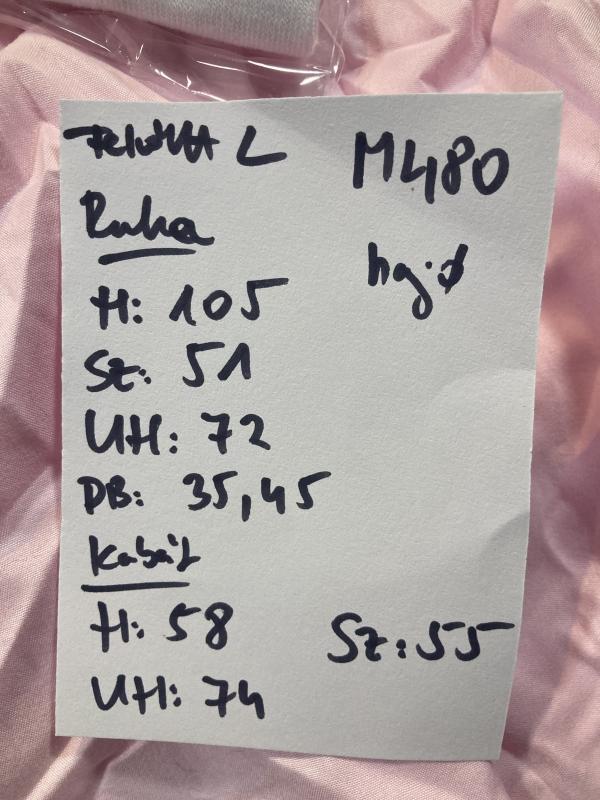 L M480
Ruha
hg.ø
H: 105
Sz: 51
UH: 72
DB: 35,45
Kabát
H: 58
Sz: 55
UH: 74